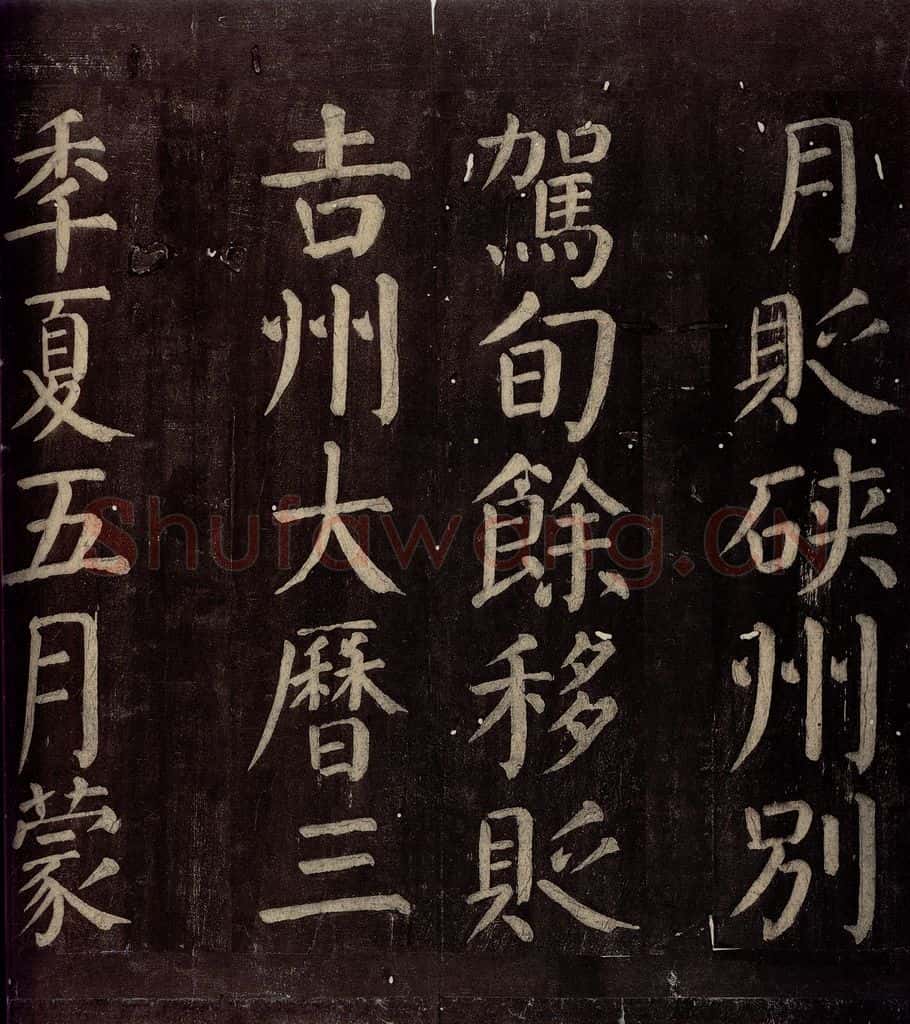 月貶硤州別
駕旬餘移貶
吉州大曆三
季夏五月蒙
Shufawang.CN